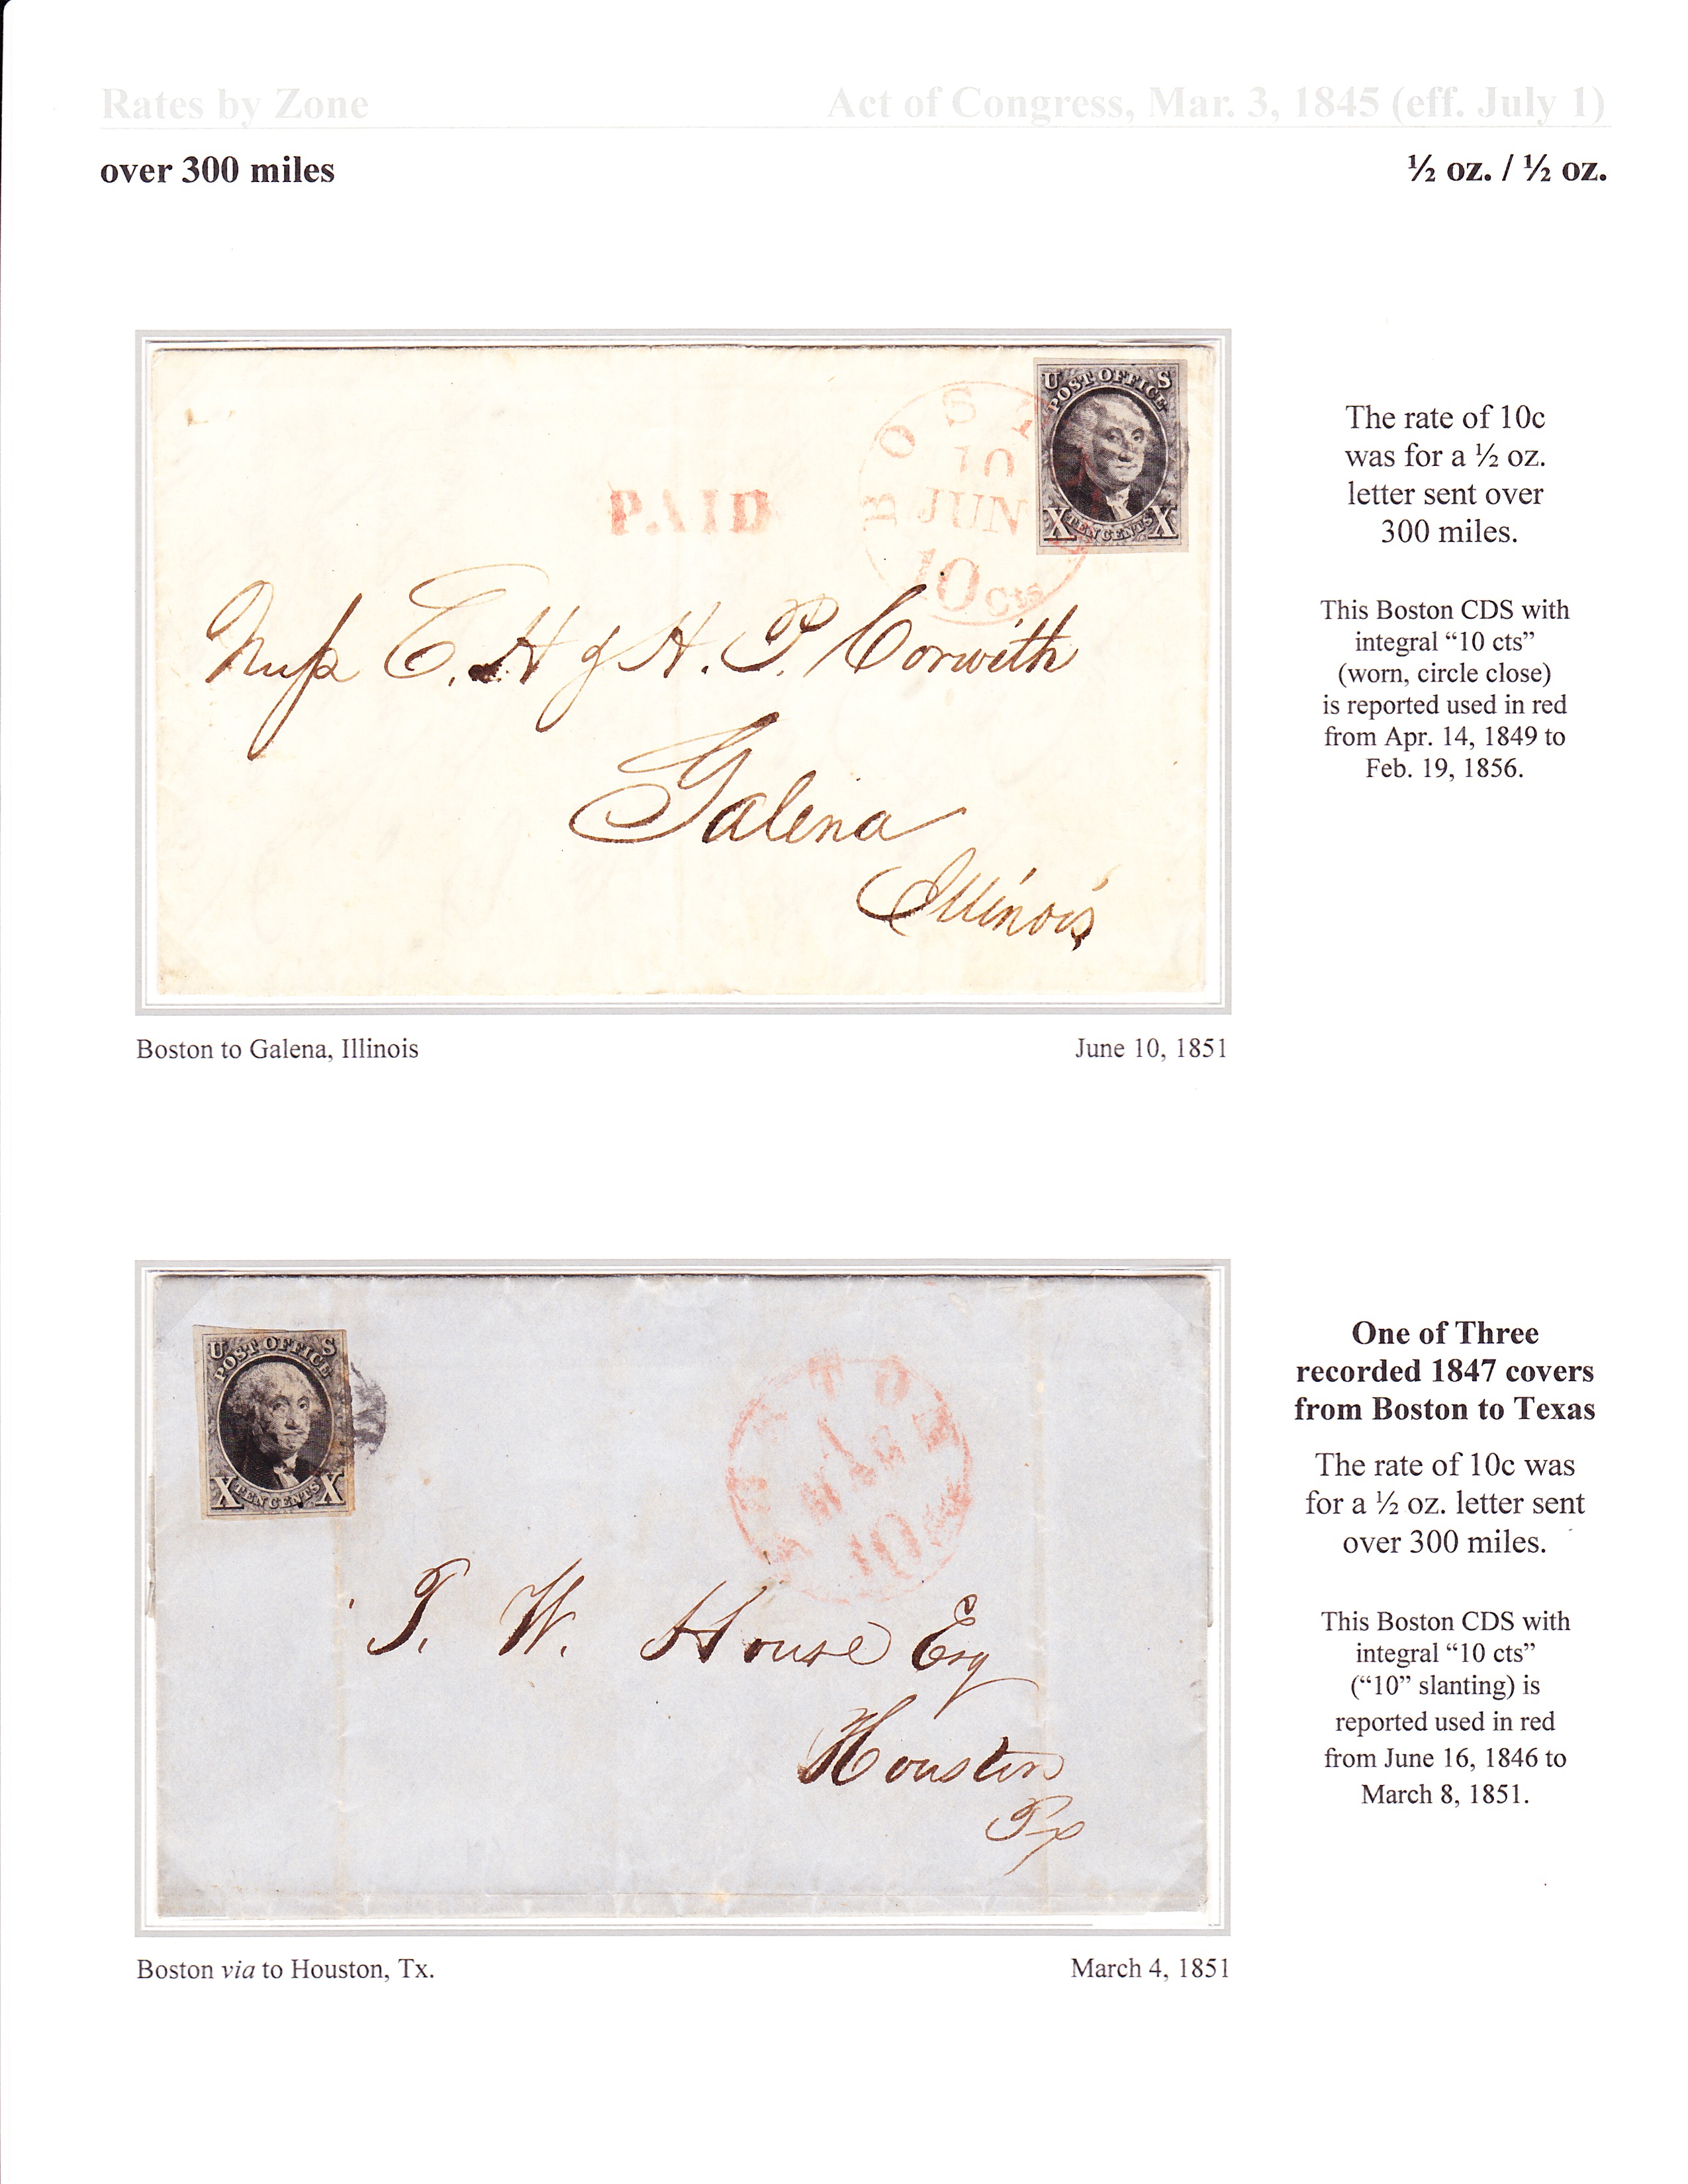 Rates by Zone
Act of Congress, Mar. 3, 1845 (eff. July 1)
over 300 miles
½ oz. / ½ oz.
U POST OFFICE S
X TEN CENTS X
BOST
10
JUN
10 cts
PAID
E. H & H. P. Corwith
Galena
Illinois
The rate of 10c
was for a ½ oz.
letter sent over
300 miles.
This Boston CDS with
integral “10 cts”
(worn, circle close)
is reported used in red
from Apr. 14, 1849 to
Feb. 19, 1856.
Boston to Galena, Illinois
June 10, 1851
U POST OFFICE S
X TEN CENTS X
10
T. W. House Esq
Houston
Tx
One of Three
recorded 1847 covers
from Boston to Texas
The rate of 10c was
for a ½ oz. letter sent
over 300 miles.
This Boston CDS with
integral “10 cts”
(“10” slanting) is
reported used in red
from June 16, 1846 to
March 8, 1851.
Boston via to Houston, Tx.
March 4, 1851